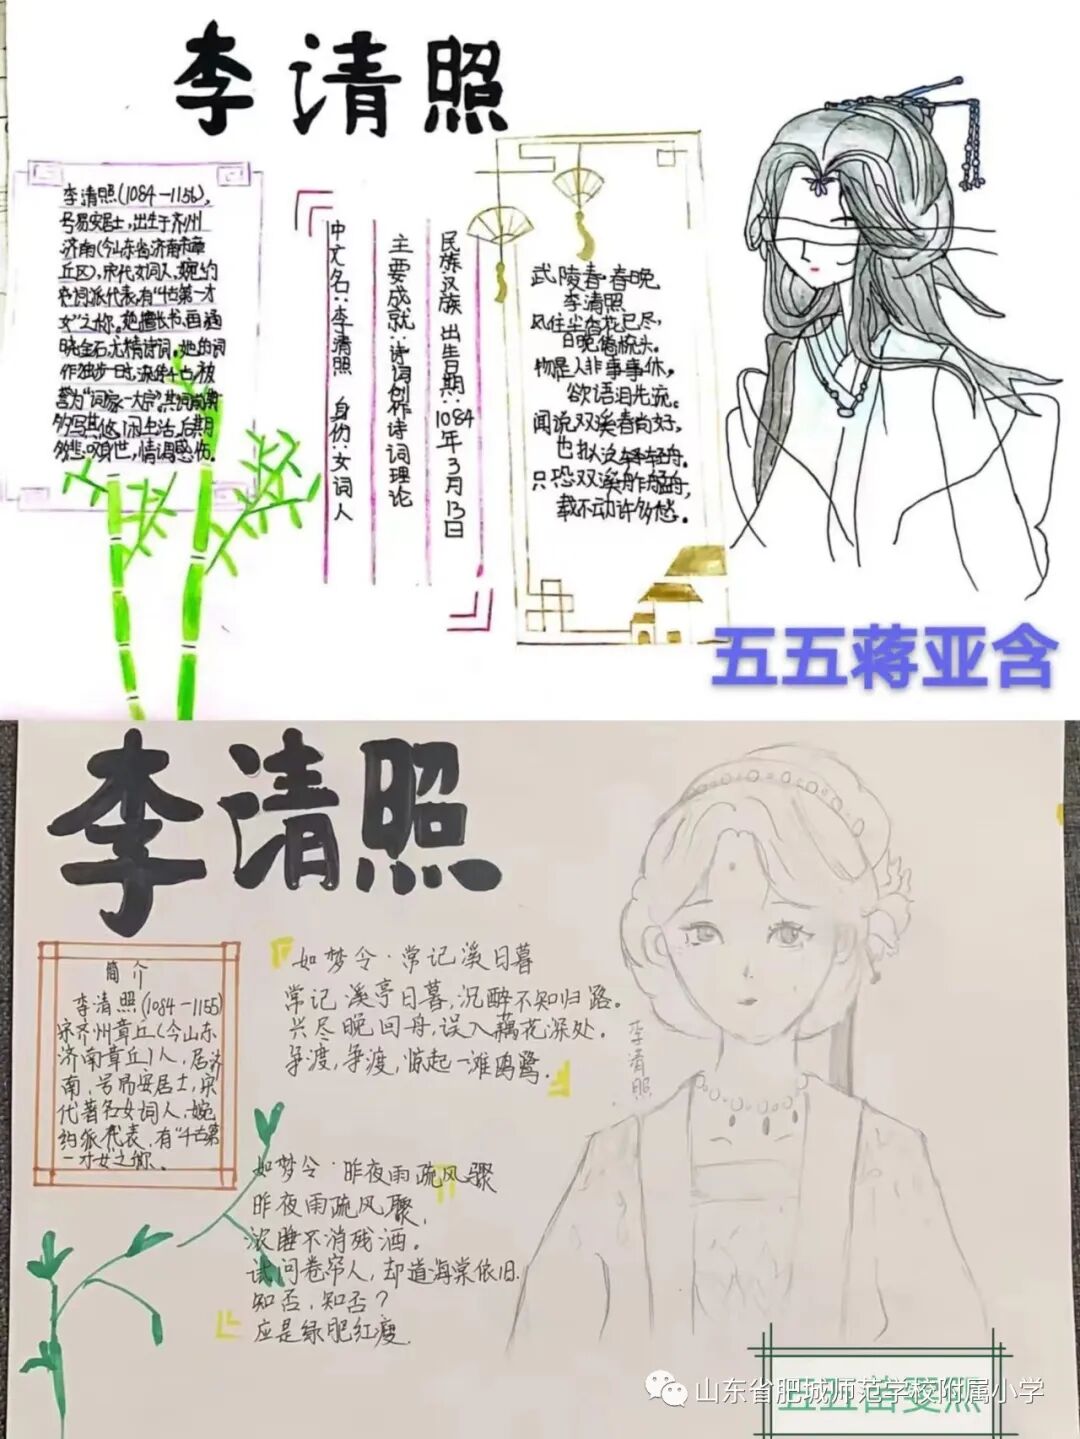 李清照
李清照(1084—1156),
号易安居士,出生于齐州
济南(今山东省济南市章
丘区),宋代女词人,婉约
词派代表,有"千古第一才
女"之称。她擅长书、画通
晓金石,尤精诗词。她的词
作独步一时,流传千古,被
誉为"词家一大宗"其词前期
多写其悠闲生活,后期
多悲叹身世,情调感伤。
中文名:李清照 身份:女词人
主要成就:诗词创作诗词理论
民族汉族 出生日期:1084年3月13日
武陵春·春晚
李清照
风住尘香花已尽,
日晚倦梳头。
物是人非事事休,
欲语泪先流。
闻说双溪春尚好,
也拟泛轻舟。
只恐双溪舴艋舟,
载不动许多愁。
五五蒋亚含
李清照
简介
李清照(1084—1155)
宋齐州章丘(今山东
济南章丘)人,居济
南,号易安居士,宋
代著名女词人,婉
约派代表,有"千古第
一才女"之称。
如梦令·常记溪日暮
常记溪亭日暮,沉醉不知归路。
兴尽晚回舟,误入藕花深处。
争渡,争渡,惊起一滩鸥鹭。
李清照
如梦令·昨夜雨疏风骤
昨夜雨疏风骤,
浓睡不消残酒。
试问卷帘人,却道海棠依旧.
知否,知否?
应是绿肥红瘦.
山东省肥城师范学校附属小学